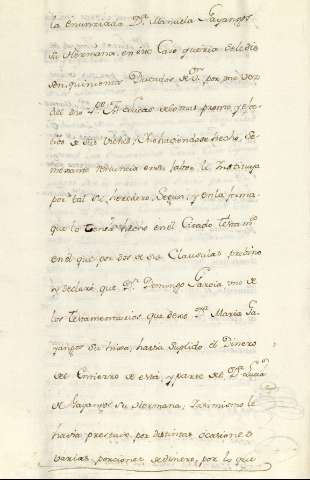 la enunziada D.ª Manuela Gayangos
su Hermana, en cuio Caso queria se le die
sen quinientos Ducados de V.ⁿ por una vez
del dho
tos de sus vienes; Y hahaciendose hecho, Se
mexante renuncia en su fabor le Instituya
por tal su heredero, Segun, y en la forma
que lo tenia hecho en el Citado Testam.ᵗᵒ
en el que por dos de sus Clausulas previno
y declaré que D.ⁿ Domingo Garcia uno de
los Testamentarios que dexo D.ª Maria Ga
yangos su hixa, havia suplido el Dinero
del Entierro de esta, y parte del D.ª Lucia
de Gayangos Su Hermana, Y asimismo le
havia prestado, por distintas ocasiones
varias, porciones de dinero, por lo que